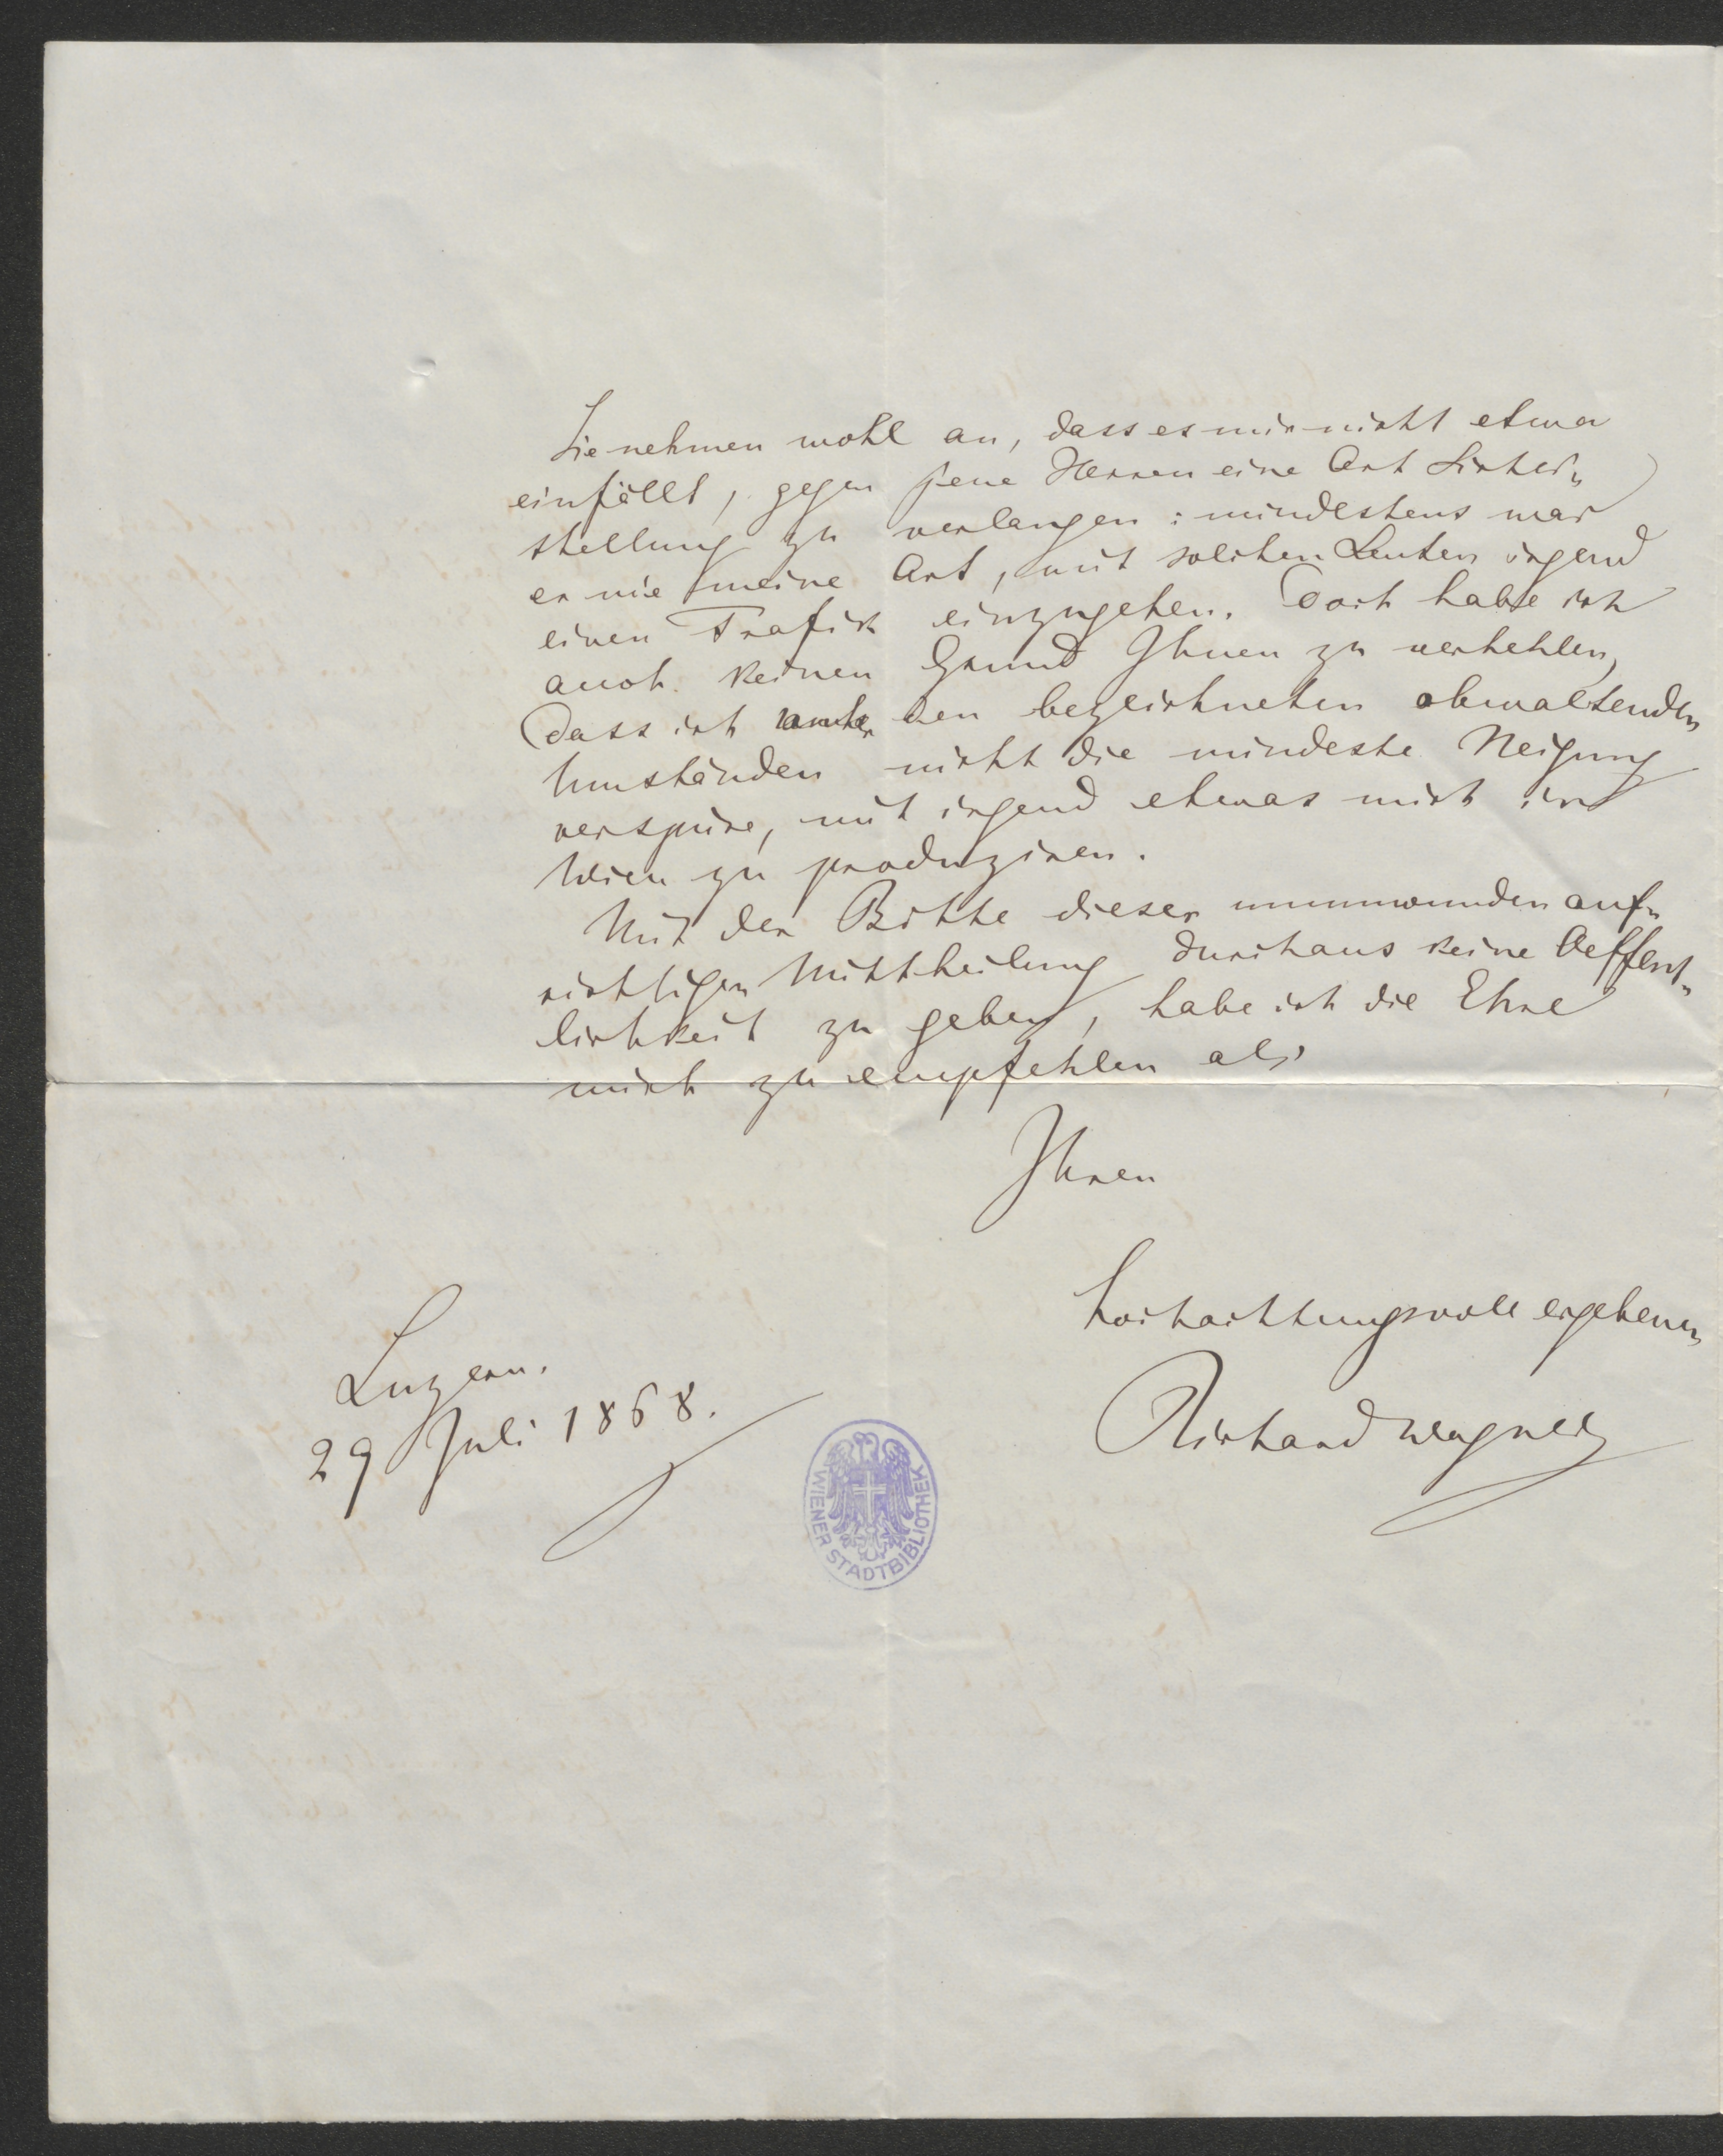 Sie nehmen wohl an, dass es mir nicht etwa
einfällt, gegen jene Herren eine Art Sicher-
stellung zu verlangen: mindestens war
es nie meine Art, mit solchen Leuten irgend
einen Trafik einzugehen. Doch habe ich
auch keinen Grund Ihnen zu verhehlen,
dass ich unter den bezeichneten obwaltenden
Umständen nicht die mindeste Neigung
verspüre, mit irgend etwas mich in
Wien zu produziren.
Mit der Bitte dieser unumwunden auf-
richtigen Mittheilung durchaus keine Oeffent-
lichkeit zu geben, habe ich die Ehre
mich zu empfehlen als
Ihren
hochachtungsvoll ergebenen
Richard Wagner
Luzern.
29 Juli 1868.
WIENER STADTBIBLIOTHEK